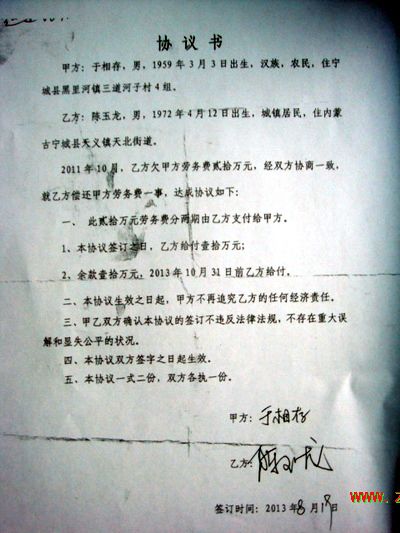 协议书
甲方：于相存，男，1959年3月3日出生，汉族，农民，住宁
城县黑里河镇三道河子村4组。
乙方：陈玉龙，男，1972年4月12日出生，城镇居民，住内蒙
古宁城县天义镇天北街道。
2011年10月，乙方欠甲方劳务费贰拾万元，经双方协商一致，
就乙方偿还甲方劳务费一事，达成协议如下：
一、此贰拾万元劳务费分两期由乙方支付给甲方。
1、本协议签订之日，乙方给付壹拾万元；
2、余款壹拾万元，2013年10月31日前乙方给付。
二、本协议生效之日起，甲方不再追究乙方的任何经济责任。
三、甲乙双方确认本协议的签订不违反法律法规，不存在重大误
解和显失公平的状况。
四、本协议双方签字之日起生效。
五、本协议一式二份，双方各执一份。
甲方：于相存
乙方：陈玉龙
签订时间：2013年8月17日
www.